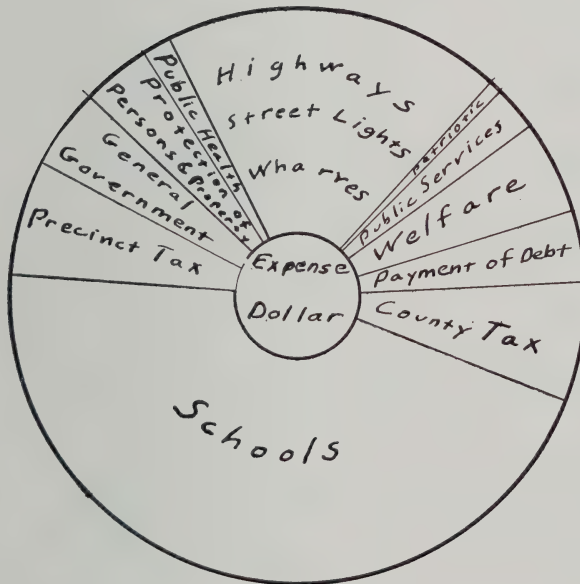 Highways
Street Lights
Wharves
Patriotic
Public Services
Welfare
Payment of Debt
County Tax
Schools
Precinct Tax
General
Government
Protection of
Persons & Property
Public Health
Expense
Dollar